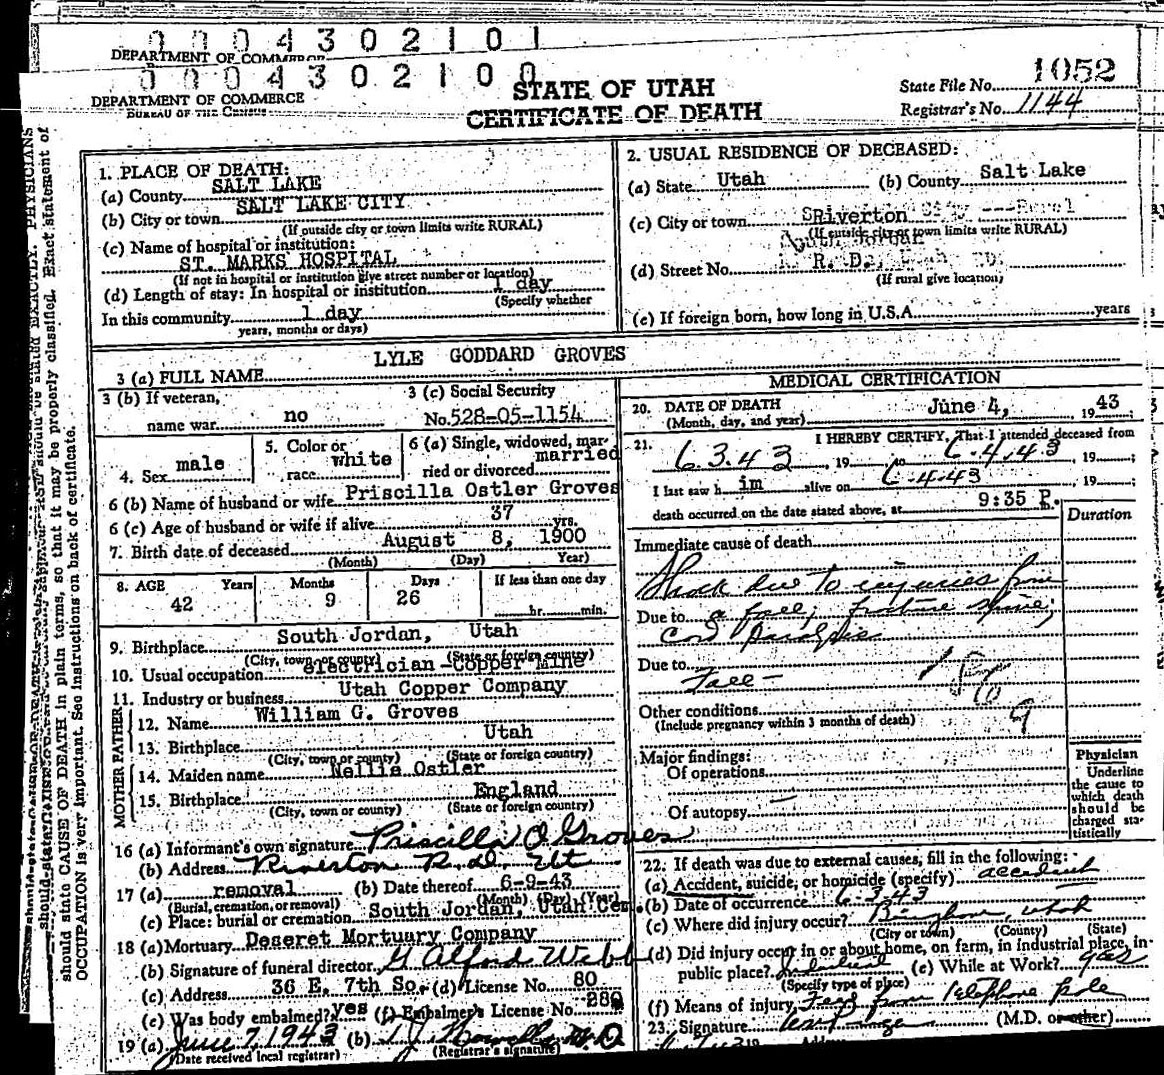 0004302101
DEPARTMENT OF COMMERCE
0004302100
DEPARTMENT OF COMMERCE
BUREAU OF THE CENSUS
STATE OF UTAH
CERTIFICATE OF DEATH
State File No. 1052
Registrar's No. 1144
1. PLACE OF DEATH:
(a) County SALT LAKE
(b) City or town SALT LAKE CITY
(If outside city or town limits write RURAL)
(c) Name of hospital or institution:
ST. MARKS HOSPITAL
(If not in hospital or institution give street number or location)
(d) Length of stay: In hospital or institution 1 day
(Specify whether
In this community 1 day
years, months or days)
2. USUAL RESIDENCE OF DECEASED:
(a) State Utah (b) County Salt Lake
(c) City or town Riverton
(If outside city or town limits write RURAL)
(d) Street No. R. D.
(If rural give location)
(e) If foreign born, how long in U.S.A. years
3 (a) FULL NAME LYLE GODDARD GROVES
3 (b) If veteran, name war no
3 (c) Social Security No. 528-05-1154
4. Sex male
5. Color or race white
6 (a) Single, widowed, married or divorced married
6 (b) Name of husband or wife Priscilla Ostler Groves
6 (c) Age of husband or wife if alive 37 yrs.
7. Birth date of deceased August 8, 1900
(Month) (Day) Year)
8. AGE Years 42 Months 9 Days 26 If less than one day hr. min.
9. Birthplace South Jordan, Utah
(City, town or county) (State or foreign country)
10. Usual occupation electrician-Copper Mine
11. Industry or business Utah Copper Company
MOTHER FATHER
12. Name William G. Groves
13. Birthplace Utah
(City, town or county) (State or foreign country)
14. Maiden name Nellie Ostler
15. Birthplace England
(City, town or county) (State or foreign country)
16 (a) Informant's own signature Priscilla O Groves
(b) Address Riverton R.D. Ut
17 (a) removal (b) Date thereof 6-9-43
(Burial, cremation, or removal) (Month) (Day) (Year)
(c) Place: burial or cremation South Jordan, Utah Cem.
18 (a) Mortuary Deseret Mortuary Company
(b) Signature of funeral director G Alford Webb
(c) Address 36 E. 7th So. (d) License No. 80
(e) Was body embalmed? yes (f) Embalmer's License No. 280
19 (a) June 7, 1943 (b) M.D
(Date received local registrar) (Registrar's signature)
MEDICAL CERTIFICATION
20. DATE OF DEATH June 4, 1943
(Month, day, and year)
21. I HEREBY CERTIFY, That I attended deceased from
6.3.43, 19 to 6.4.43, 19
I last saw h im alive on 6-4-43, 19
death occurred on the date stated above, at 9:35 P.
Duration
Immediate cause of death
Shock due to injuries from
Due to a fall; fracture spine;
Cord paralysis
Due to
Fall -
Other conditions
(Include pregnancy within 3 months of death)
9
Major findings:
Of operations
Of autopsy
Physician
Underline the cause to which death should be charged statistically
22. If death was due to external causes, fill in the following:
(a) Accident, suicide, or homicide (specify) accident
(b) Date of occurrence 6-3-43
(c) Where did injury occur? Bingham, Utah
(City or town) (County) (State)
(d) Did injury occur in or about home, on farm, in industrial place, in public place? Industrial (e) While at Work? yes
(Specify type of place)
(f) Means of injury Fall from telephone pole
23. Signature (M.D. or other)
should state CAUSE OF DEATH in plain terms, so that it may be properly classified. Exact statement of
OCCUPATION is very important. See instructions on back of certificate.